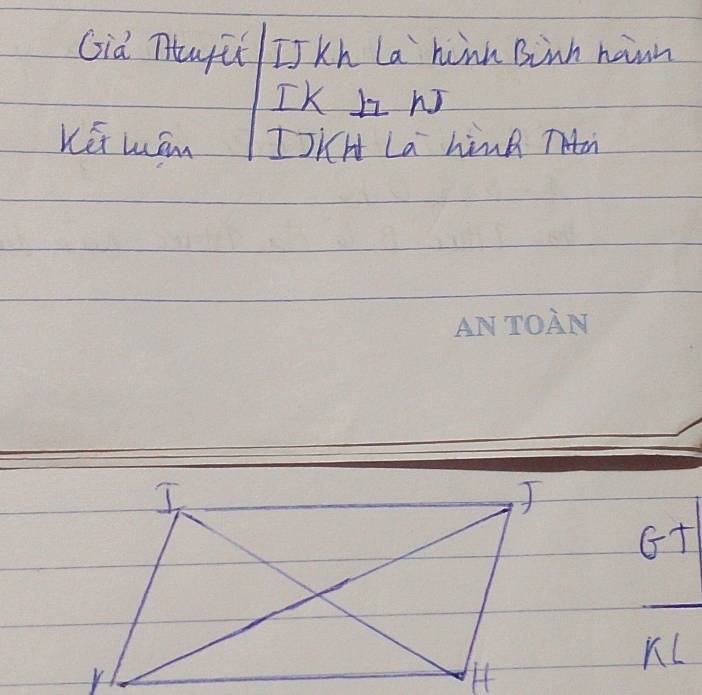 Giả Thuyết | IJKh Là hình Bình hành
IK ⊥ hJ
Kết luận | IJKH Là hình Thoi
AN TOÀN
I J
GT
K H
KL